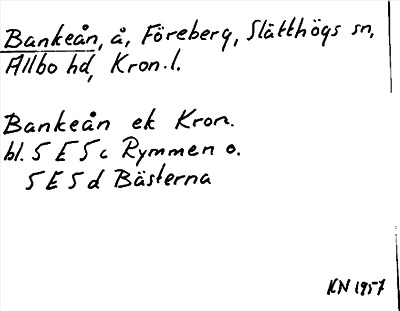 Bankeån, å, Föreberg, Slätthögs sn,
Allbo hd, Kron. l.
Bankeån ek Kron.
bl. 5 E 5 c Rymmen o.
5 E 5 d Bästerna
KN 1957